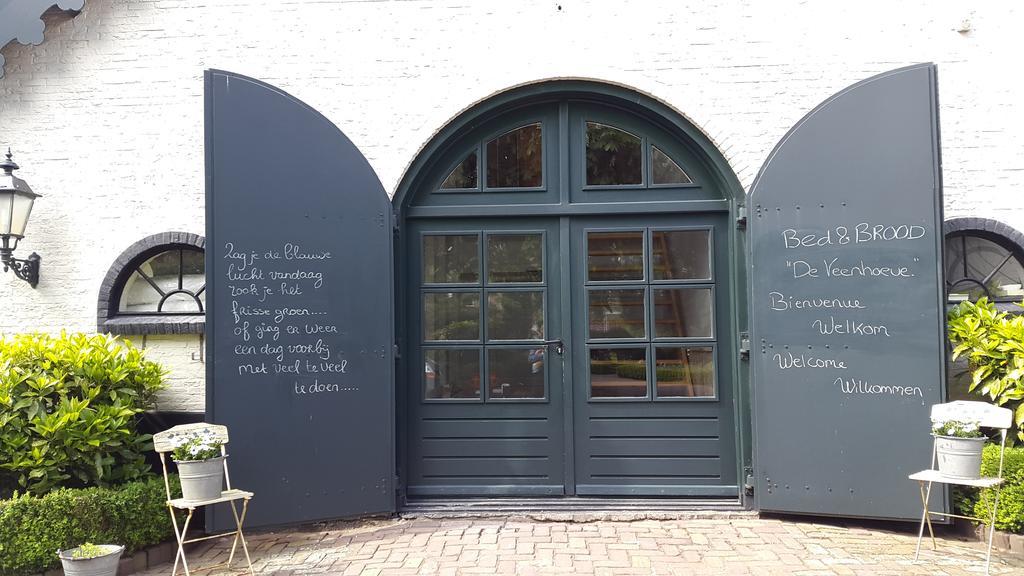 Zag je de blauwe
lucht vandaag
rook je het
frisse groen....
of ging er weer
een dag voorbij
met veel te veel
te doen.....
Bed & BROOD
"De Veenhoeve."
Bienvenue
Welkom
Welcome
Wilkommen